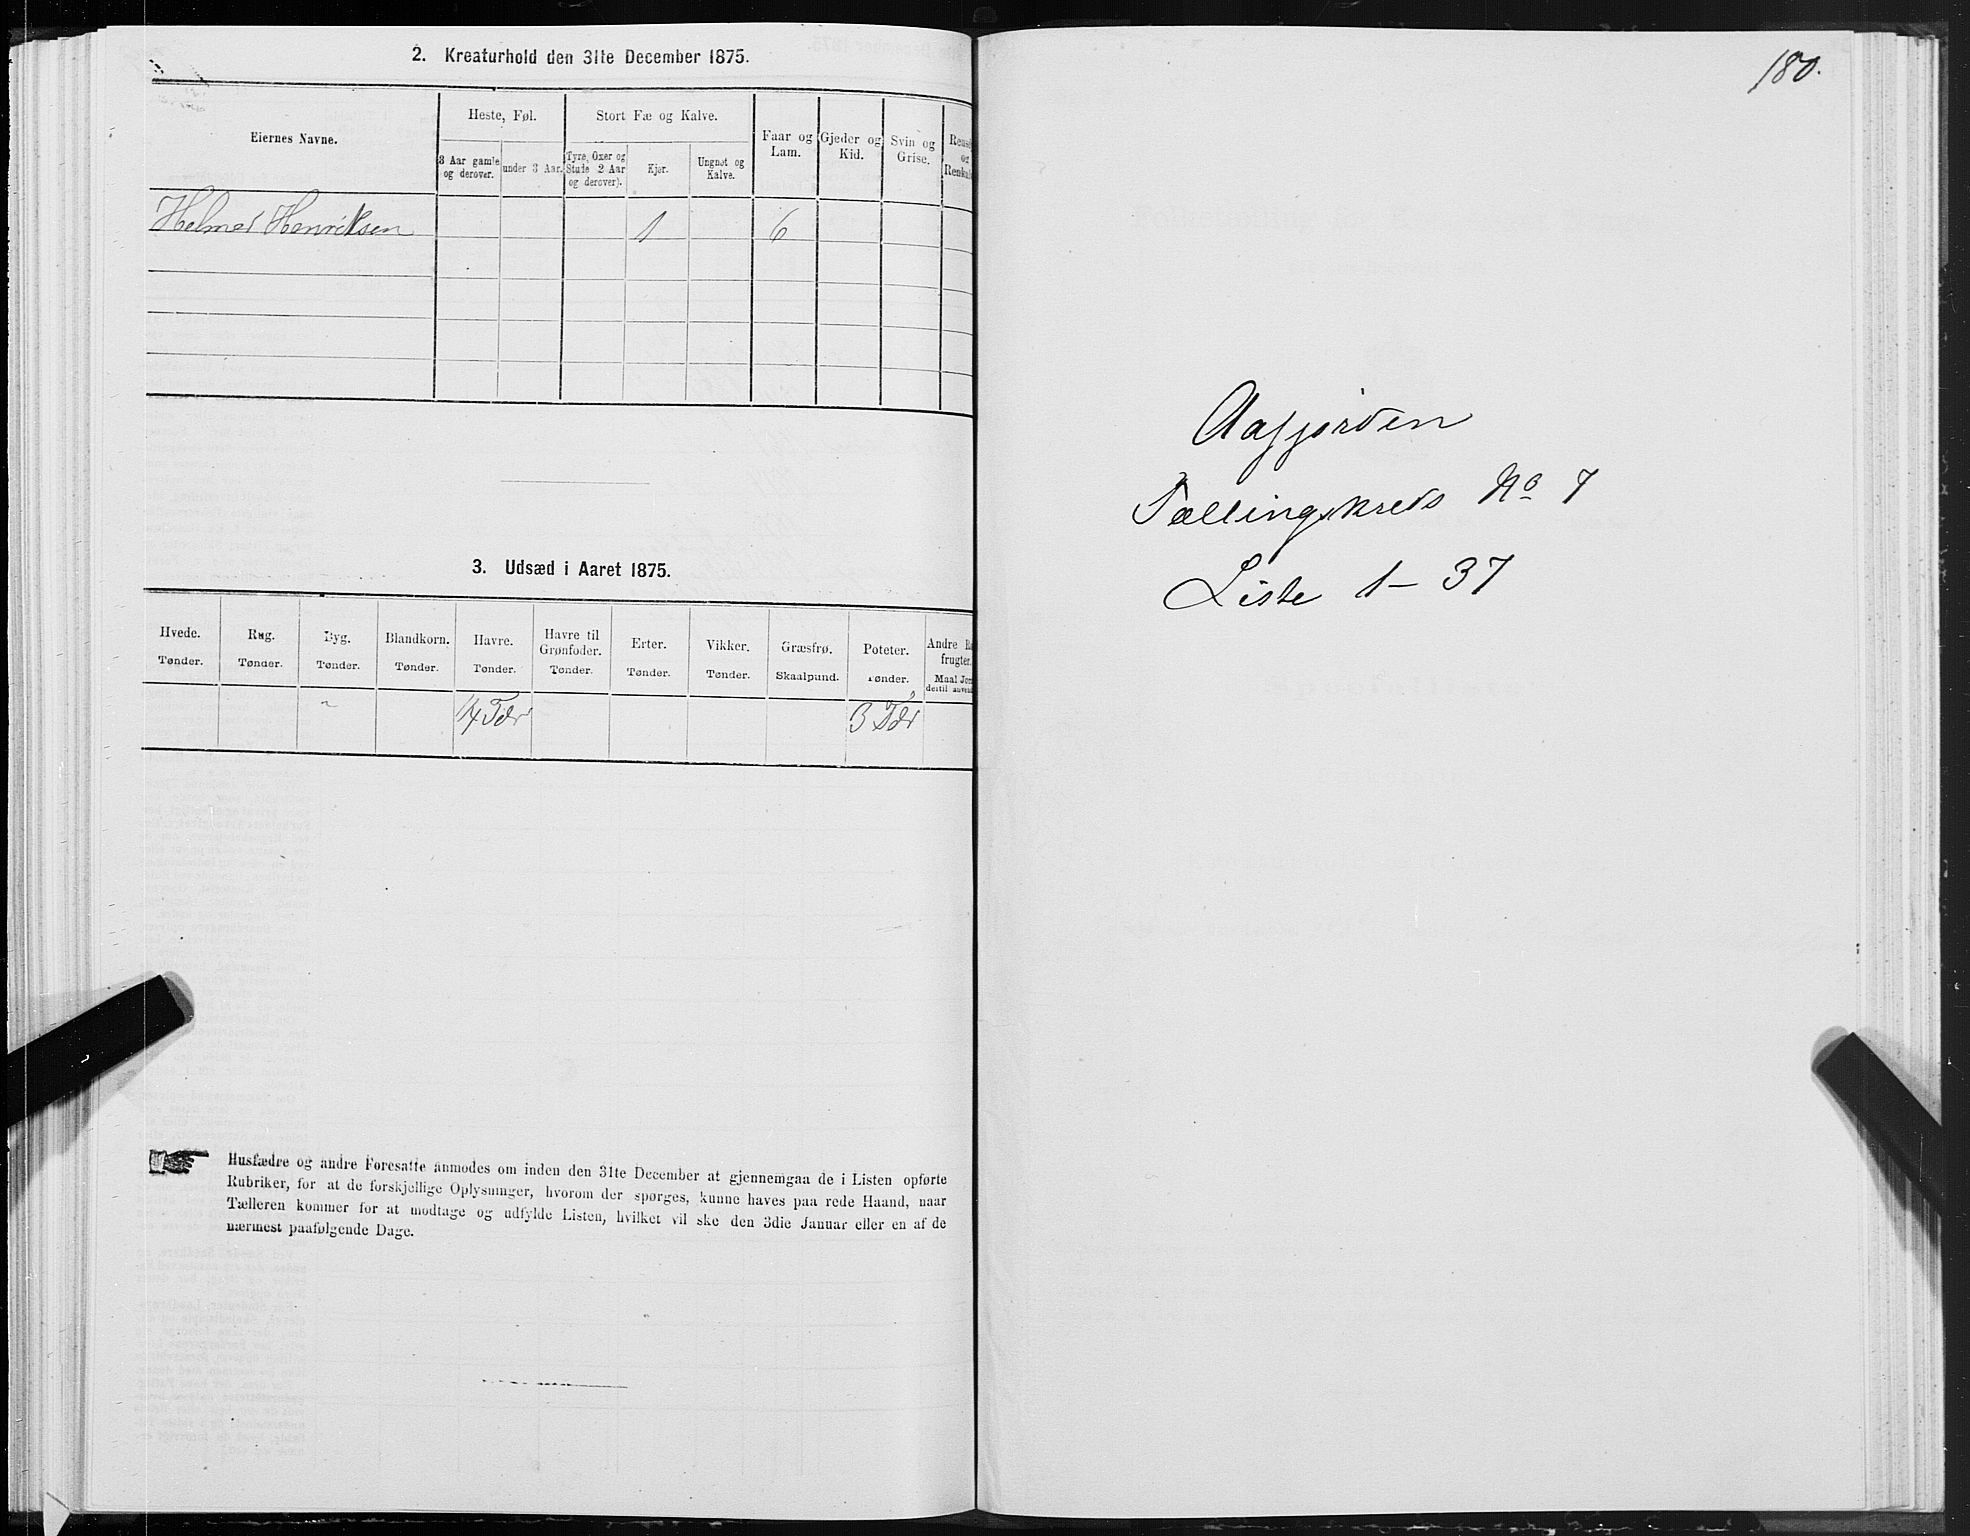 2. Kreaturhold den 31te December 1875.
Eiernes Navne.
Heste, Føl.
Stort Fæ og Kalve.
Faar og
Lam.
Gjeder og
Kid.
Svin og
Grise.
og
3 Aar gamle
og derover.
under 3 Aar.
Tyre, Oxer og
Stude 2 Aar
og derover).
Kjør.
Ungnøt og
Kalve.
Helmer Henriksen 1 6
3. Udsæd i Aaret 1875.
Hvede.
Tønder.
Rug.
Tønder.
Byg.
Tønder.
Blandkorn.
Tønder.
Havre.
Tønder.
Havre til
Grønfoder.
Tønder.
Erter.
Tønder.
Vikker.
Tønder.
Græsfrø.
Skaalpund.
Poteter.
Tønder.
Andre
frugter.
Maal
dertil
3 Tdr
Husfædre og andre Foresatte anmodes om inden den 31te December at gjennemgaa de i Listen opførte
Rubriker, for at de forskjellige Oplysninger, hvorom der spørges, kunne haves paa rede Haand, naar
Tælleren kommer for at modtage og udfylde Listen, hvilket vil ske den 3die Januar eller en af de
nærmest paafølgende Dage.
180.
Aafjorden
Tællingskreds No 7
Liste 1-37